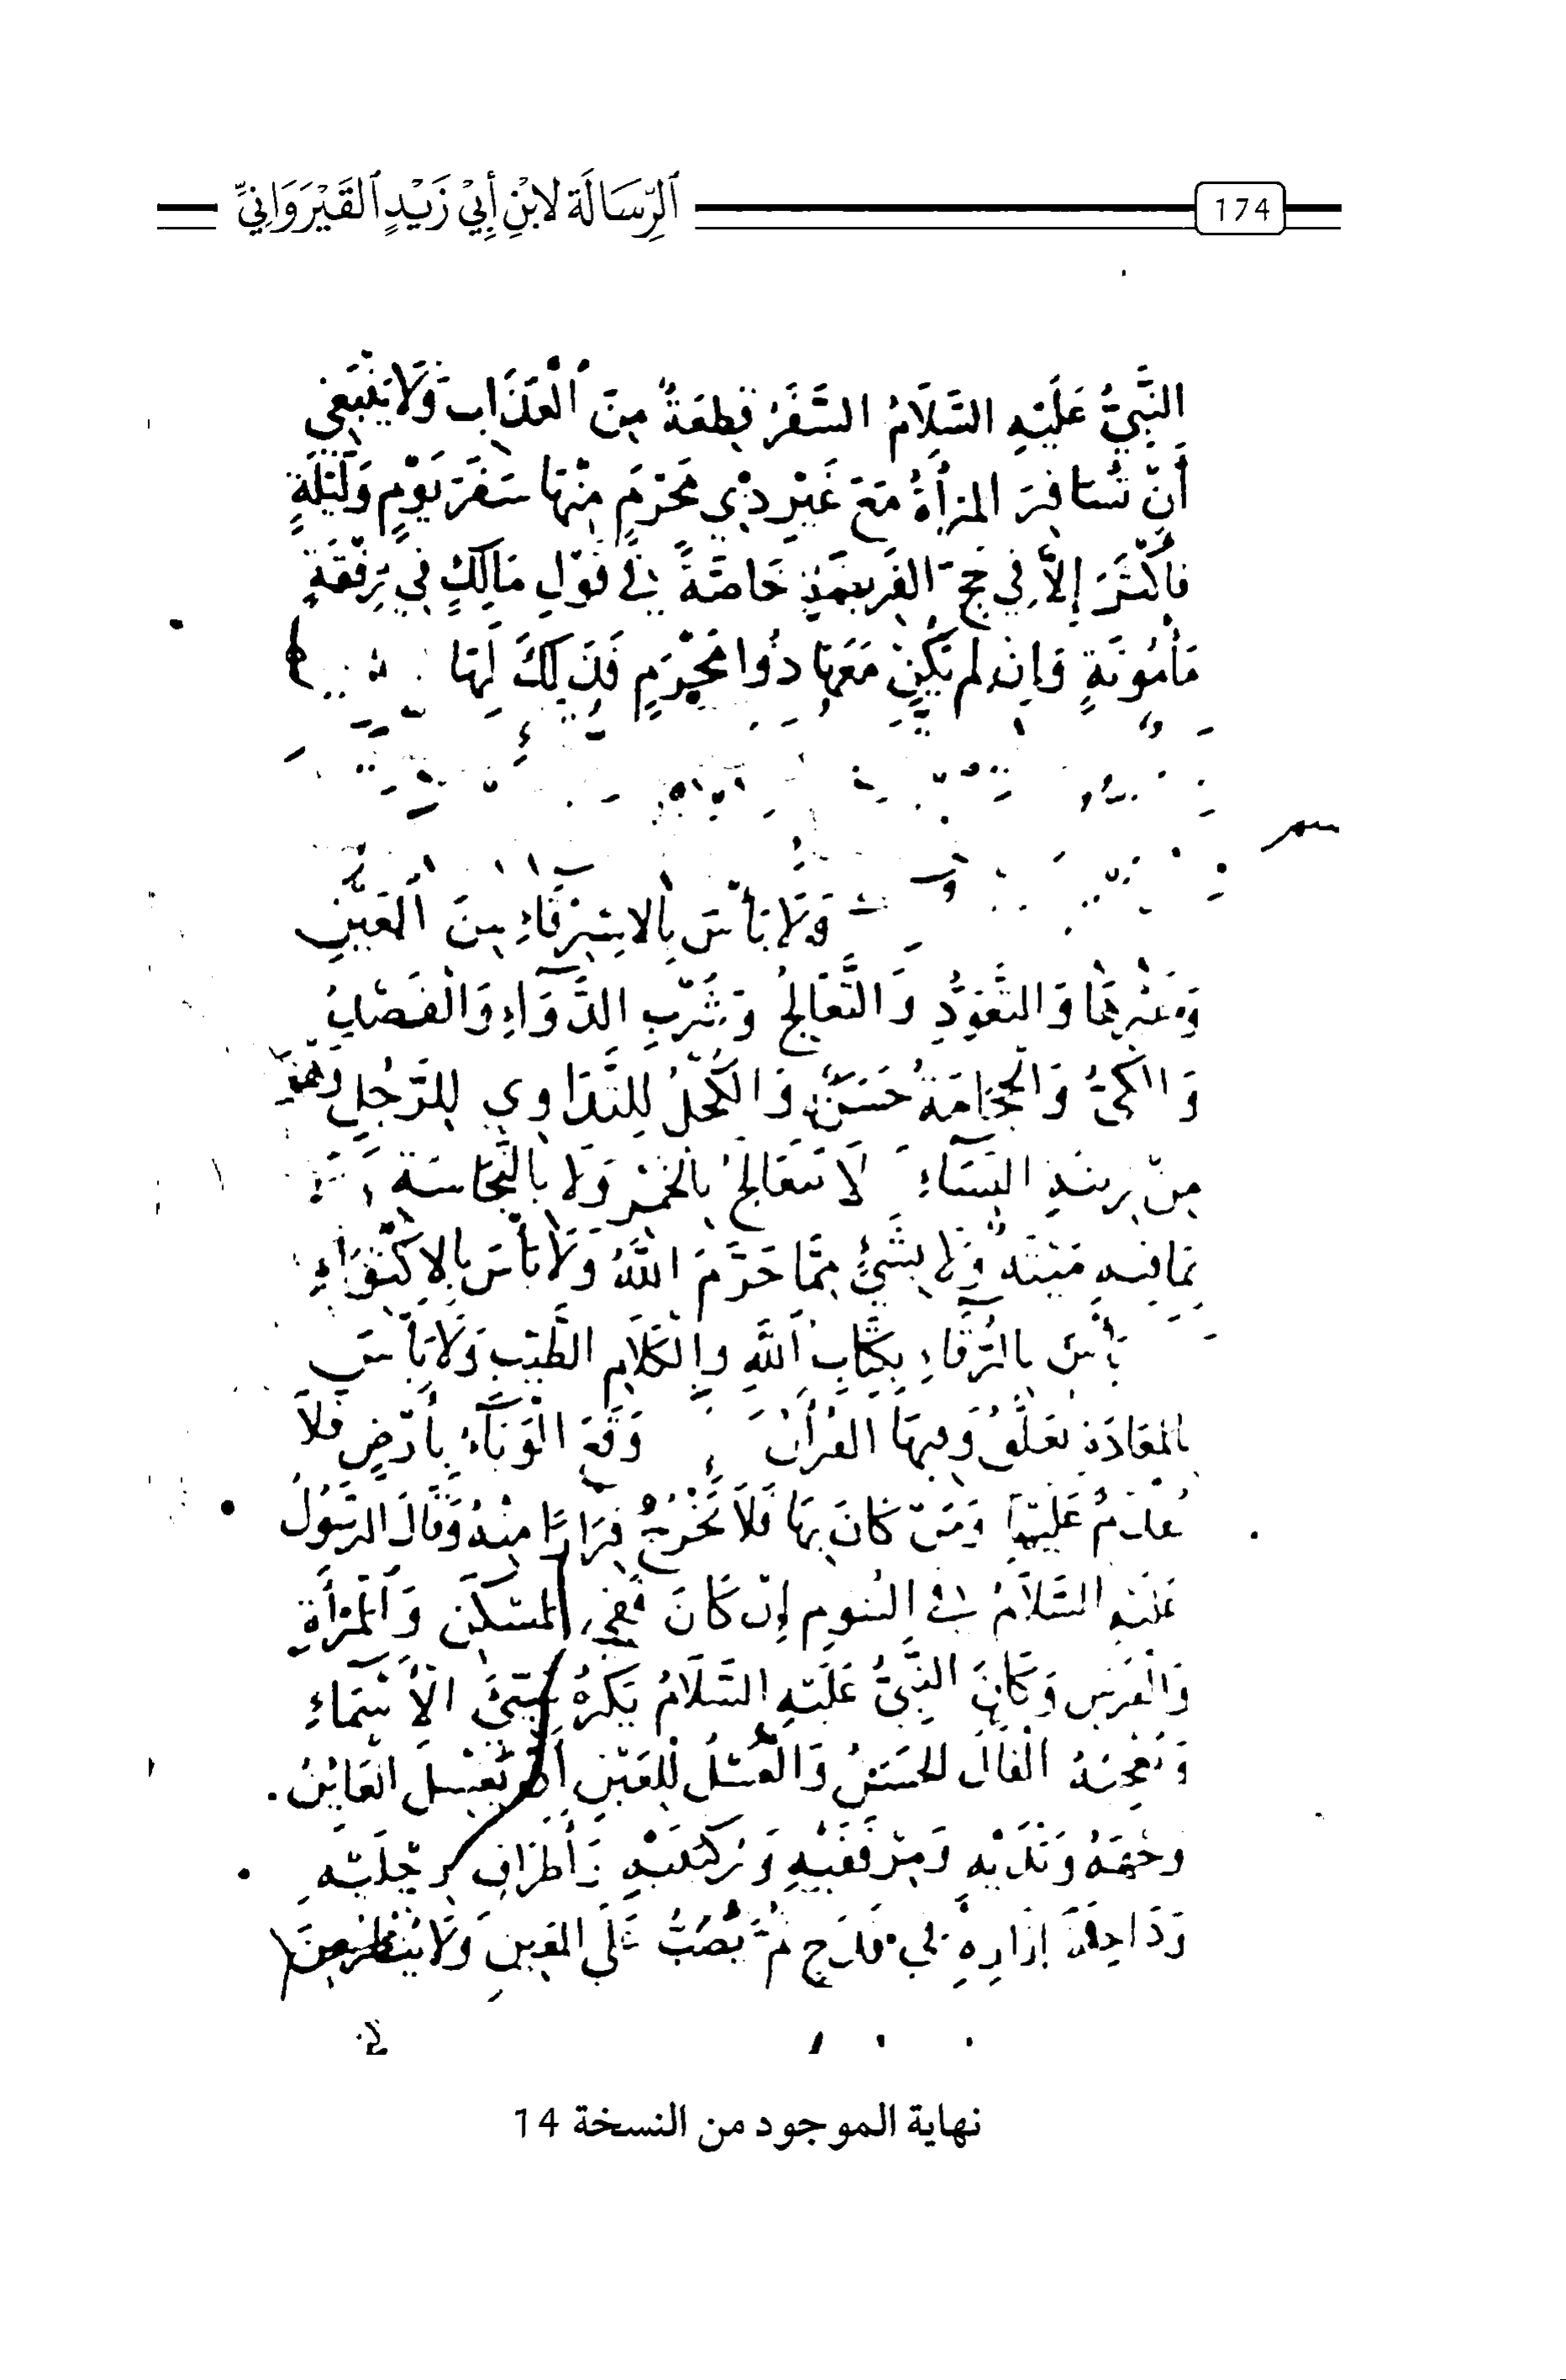 174
ٱلرِّسَالَة لابْنِ أَبِيْ زَيْدٍ ٱلقَيْرَوَانِيِّ
النَّبِيُّ عَلَيْهِ السَّلَامُ السَّفَرُ قِطعَةٌ مِنَ الْعَذَابِ وَلَا يَنْبَغِي
أَنْ تُسَافِرَ المَرْأَةُ مَعَ غَيْرِ ذِي مَحْرَمٍ مِنْهَا سَفَرَ يَوْمٍ وَلَيْلَةٍ
فَأَكْثَرَ إِلَّا فِي حَجِّ الفَرِيضَةِ خَاصَّةً فِي قَوْلِ مَالِكٍ فِي رِفْقَةٍ
مَأْمُونَةٍ وَإِن لَم يَكُنْ مَعَهَا ذُوا مَحْرَمٍ فَذَلِكَ لَهَا
وَلَا بَأْسَ بِالاسْتِرْقَاءِ مِنَ الْعَيْنِ
وَغَيْرِهَا وَالتَّعَوُّذِ وَالتَّعَالُجِ وَشُرْبِ الدَّوَاءِ وَالْفَصْدِ
وَالكَيُّ وَالْحِجَامَةُ حَسَنَةٌ وَالْكُحْلُ لِلتَّدَاوِي لِلرَّجُلِ وَهُوَ
مِنْ زِينَةِ النِّسَاءِ لَا يَتَعَالَجُ بِالْخَمْرِ وَلَا بِالنَّجَاسَةِ
بِمَا فِيهِ مَيْتَةٌ وَلَا بِشَيْءٍ مِمَّا حَرَّمَ اللَّهُ وَلَا بَأْسَ بِالِاكْتِوَاءِ
بَأْسَ بِالرُّقَاءِ بِكِتَابِ اللَّهِ وَبِالْكَلَامِ الطَّيِّبِ وَلَا بَأْسَ
بِالْمَعَاذَةِ تُعَلَّقُ وَفِيهَا القُرْآنُ وَقَعَ الْوَبَاءُ بِأَرْضٍ فَلَا
يُقْدَمُ عَلَيْهَا وَمَنْ كَانَ بِهَا فَلَا يَخْرُجْ فِرَارًا مِنْهُ وَقَالَ الرَّسُولُ
عَلَيْهِ السَّلَامُ فِي الشُّومِ إِنْ كَانَ فَفِي الْمَسْكَنِ وَالْمَرْأَةِ
وَالْفَرَسِ وَكَانَ النَّبِيُّ عَلَيْهِ السَّلَامُ يَكْرَهُ سَيِّئَ الْأَسْمَاءِ
وَيُعْجِبُهُ الْفَالُ الحَسَنُ وَالْغُسْلُ لِلْعَيْنِ أَنْ يَغْسِلَ الْعَايِنُ
وَجْهَهُ وَيَدَيْهِ وَمِرْفَقَيْهِ وَرُكْبَتَيْهِ وَأَطْرَافِ رِجْلَيْهِ
وَدَاخِلَةَ إِزَارِهِ فِي قَدَحٍ ثُمَّ يُصَبُّ عَلَى المَعِينِ وَلَا يُنْظَرُ
نهاية الموجود من النسخة 14